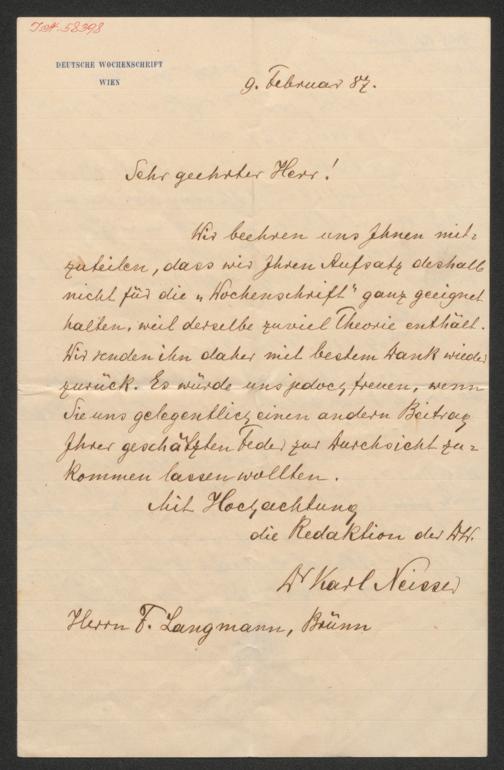 I.N. 58398
DEUTSCHE WOCHENSCHRIFT
WIEN
9. Februar 87.
Sehr geehrter Herr!
Wir beehren uns Ihnen mit-
zuteilen, dass wir Ihren Aufsatz deshalb
nicht für die „Wochenschrift“ ganz geeignet
halten, weil derselbe zuviel Theorie enthält.
Wir senden ihn daher mit bestem Dank wieder
zurück. Es würde uns jedoch freuen, wenn
Sie uns gelegentlich einen andern Beitrag
Ihrer geschätzten Feder zur Durchsicht zu-
kommen lassen wollten.
Mit Hochachtung
die Redaktion der DW.
Dr Karl Neisser
Herrn F. Langmann, Brünn